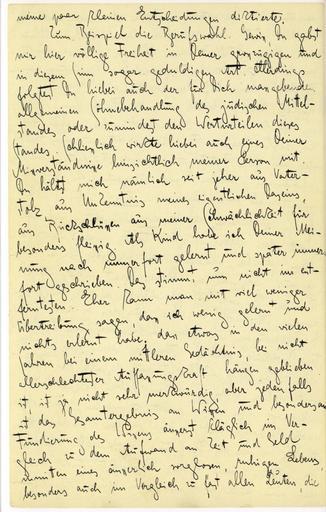 meine paar kleinen Entscheidungen diktierte.
Zum Beispiel die Berufswahl. Gewiss Du gabst
mir hier völlige Freiheit in Deiner grosszügigen und
in diesem Sinn sogar geduldigen Art. Allerdings
folgtest Du hiebei auch der für Dich massgebenden
allgemeinen Söhnebehandlung des jüdischen Mittel-
standes oder zumindest den Werturteilen dieses
Standes. Schliesslich wirkte hiebei auch eines Deiner
Missverständnisse hinsichtlich meiner Person mit.
Du hältst mich nämlich seit jeher aus Vater-
stolz aus Unkenntnis meines eigentlichen Daseins,
aus Rückschlüssen aus meiner Schwächlichkeit für
besonders fleissig. Als Kind habe ich Deiner Mei-
nung nach immerfort gelernt und später immer-
fort geschrieben. Das stimmt nun nicht im ent-
ferntesten. Eher kann man mit viel weniger
Übertreibung sagen, dass ich wenig gelernt und
nichts erlernt habe; dass etwas in den vielen
Jahren bei einem mittleren Gedächtnis, bei nicht
allerschlechtester Auffassungskraft hängen geblieben
ist, ist ja nicht sehr merkwürdig, aber jedenfalls
ist das Gesamtergebnis an Wissen und besonders an
Fundierung des Wissens äusserst kläglich im Ver-
gleich zu dem Aufwand an Zeit und Geld
inmitten eines äusserlich sorglosen, ruhigen Lebens,
besonders auch im Vergleich zu fast allen Leuten, die